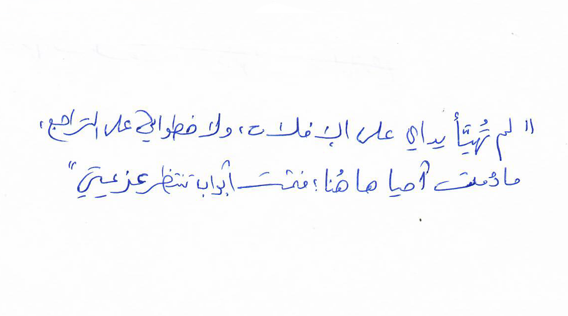 "لم تُهيَّأ يداي على الإفلات، ولا خطواتي على التراجع،
ما دُمتُ أحيا ها هُنا؛ فثمّت أبواب تنتظر عزيمتي"